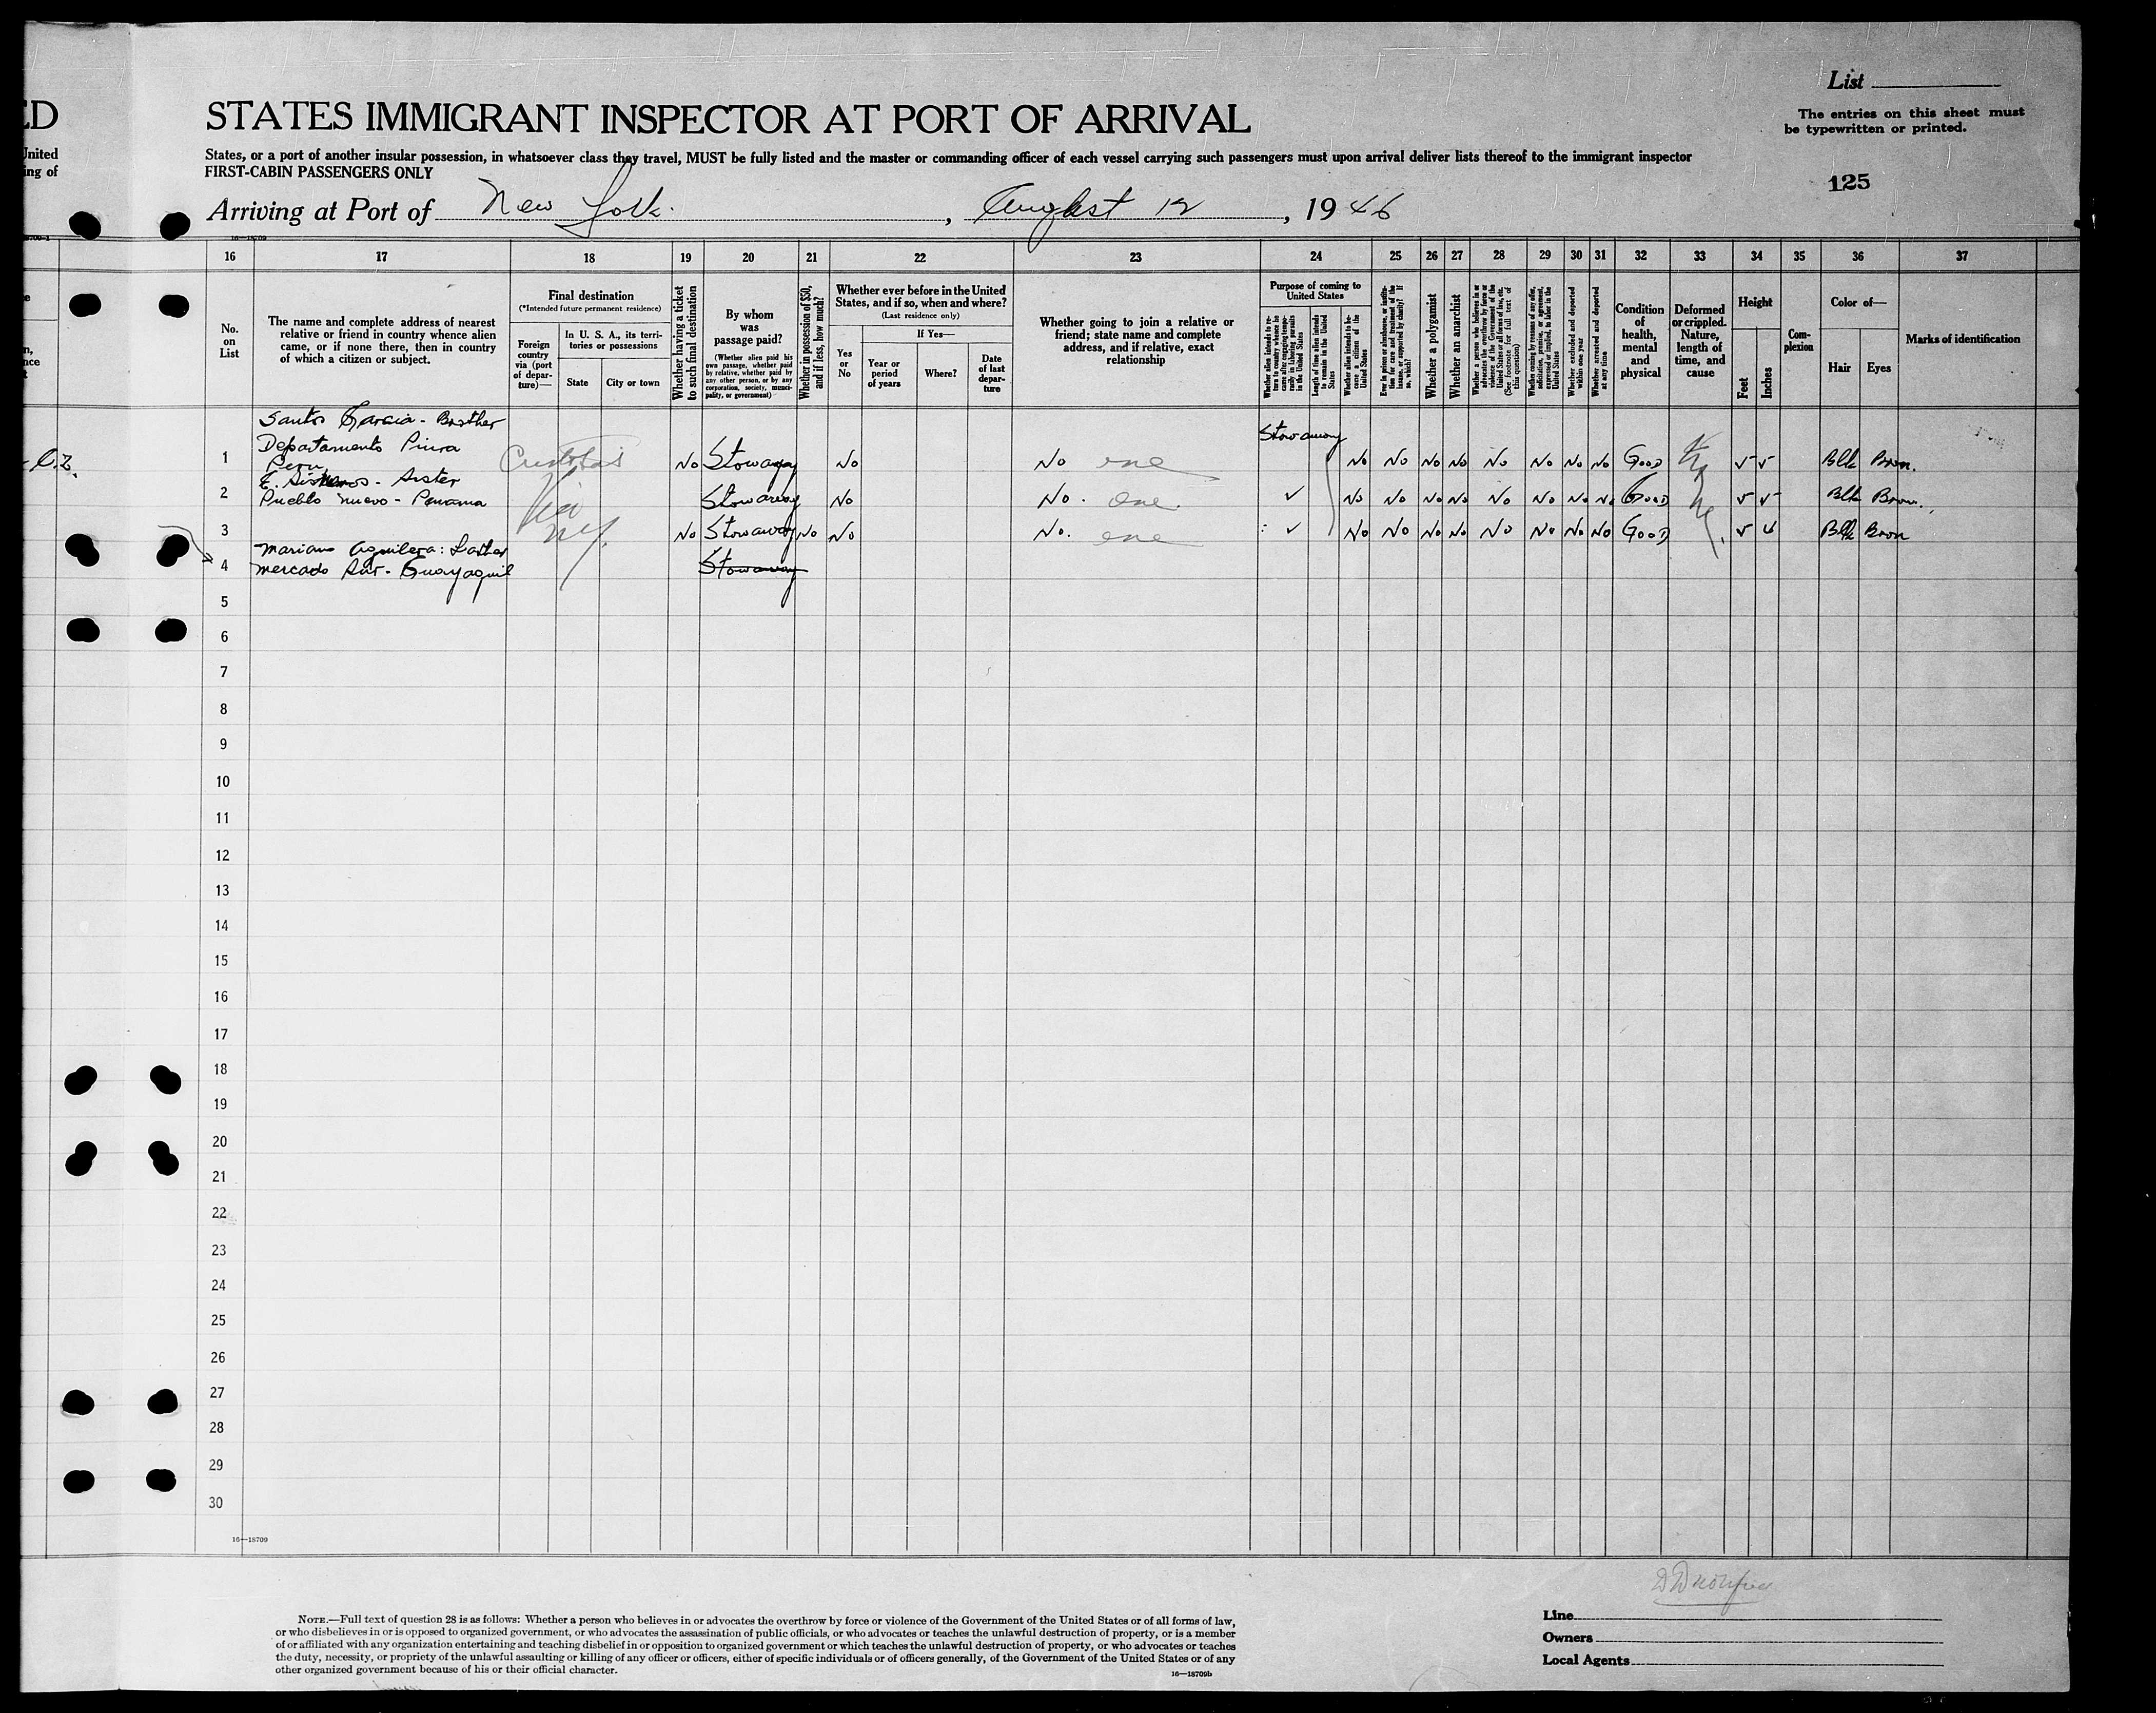 List
ED
STATES IMMIGRANT INSPECTOR AT PORT OF ARRIVAL
The entries on this sheet must
be typewritten or printed.
United
States, or a port of another insular possession, in whatsoever class they travel, MUST be fully listed and the master or commanding officer of each vessel carrying such passengers must upon arrival deliver lists thereof to the immigrant inspector
ing of
FIRST-CABIN PASSENGERS ONLY
125
Arriving at Port of New York. , August 12 , 19 46
16—18709
16 17 18 19 20 21 22 23 24 25 26 27 28 29 30 31 32 33 34 35 36 37
No.
on
List
The name and complete address of nearest
relative or friend in country whence alien
came, or if none there, then in country
of which a citizen or subject.
Final destination
(*Intended future permanent residence)
Foreign
country
via (port
of depar-
ture)—
In U. S. A., its terri-
tories or possessions
State
City or town
Whether having a ticket
to such final destination
By whom
was
passage paid?
(Whether alien paid his
own passage, whether paid
by relative, whether paid by
any other person, or by any
corporation, society, munici-
pality, or government)
Whether in possession of $50,
and if less, how much?
Whether ever before in the United
States, and if so, when and where?
(Last residence only)
Yes
or
No
If Yes—
Year or
period
of years
Where?
Date
of last
depar-
ture
Whether going to join a relative or
friend; state name and complete
address, and if relative, exact
relationship
Purpose of coming to
United States
Whether alien intends to re-
turn to country whence he
came after engaging tempo-
rarily in laboring pursuits
in the United States
Length of time alien intends
to remain in the United
States
Whether alien intends to be-
come a citizen of the
United States
Ever in prison or almshouse, or institu-
tion for care and treatment of the
insane, or supported by charity? If
so, which?
Whether a polygamist
Whether an anarchist
Whether a person who believes in or
advocates the overthrow by force or
violence of the Government of the
United States or all forms of law, etc.
(See footnote for full text of
this question)
Whether coming by reasons of any offer,
solicitation, promise, or agreement,
expressed or implied, to labor in the
United States
Whether excluded and deported
within one year
Whether arrested and deported
at any time
Condition
of
health,
mental
and
physical
Deformed
or crippled.
Nature,
length of
time, and
cause
Height
Feet
Inches
Com-
plexion
Color of—
Hair
Eyes
Marks of identification
Santos Garcia - Brother
Departamento Piura
Peru
1 No Stowaway No No one Stowaway No No No No No No No No Good 5 5 Blk Brwn.
- Sister
Pueblo nuevo - Panama
2 Stowaway No No. one. ✓ No No No No No No No No Good 5 5 Blk Brwn.
3 No Stowaway No No No. one ✓ No No No No No No No No Good 5 4 Blk Brwn
via
NY.
Mariano Aguilera: Father
Mercado Sur - Guayaquil
4 Stowaway
5
6
7
8
9
10
11
12
13
14
15
16
17
18
19
20
21
22
23
24
25
26
27
28
29
30
16—18709
NOTE.—Full text of question 28 is as follows: Whether a person who believes in or advocates the overthrow by force or violence of the Government of the United States or of all forms of law,
or who disbelieves in or is opposed to organized government, or who advocates the assassination of public officials, or who advocates or teaches the unlawful destruction of property, or is a member
of or affiliated with any organization entertaining and teaching disbelief in or opposition to organized government or which teaches the unlawful destruction of property, or who advocates or teaches
the duty, necessity, or propriety of the unlawful assaulting or killing of any officer or officers, either of specific individuals or of officers generally, of the Government of the United States or of any
other organized government because of his or their official character.
16—18709b
Line
Owners
Local Agents